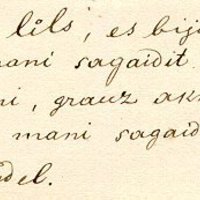 lils, es bij
mani sagaidit
ni, grauz ak
mani sagaid
del.